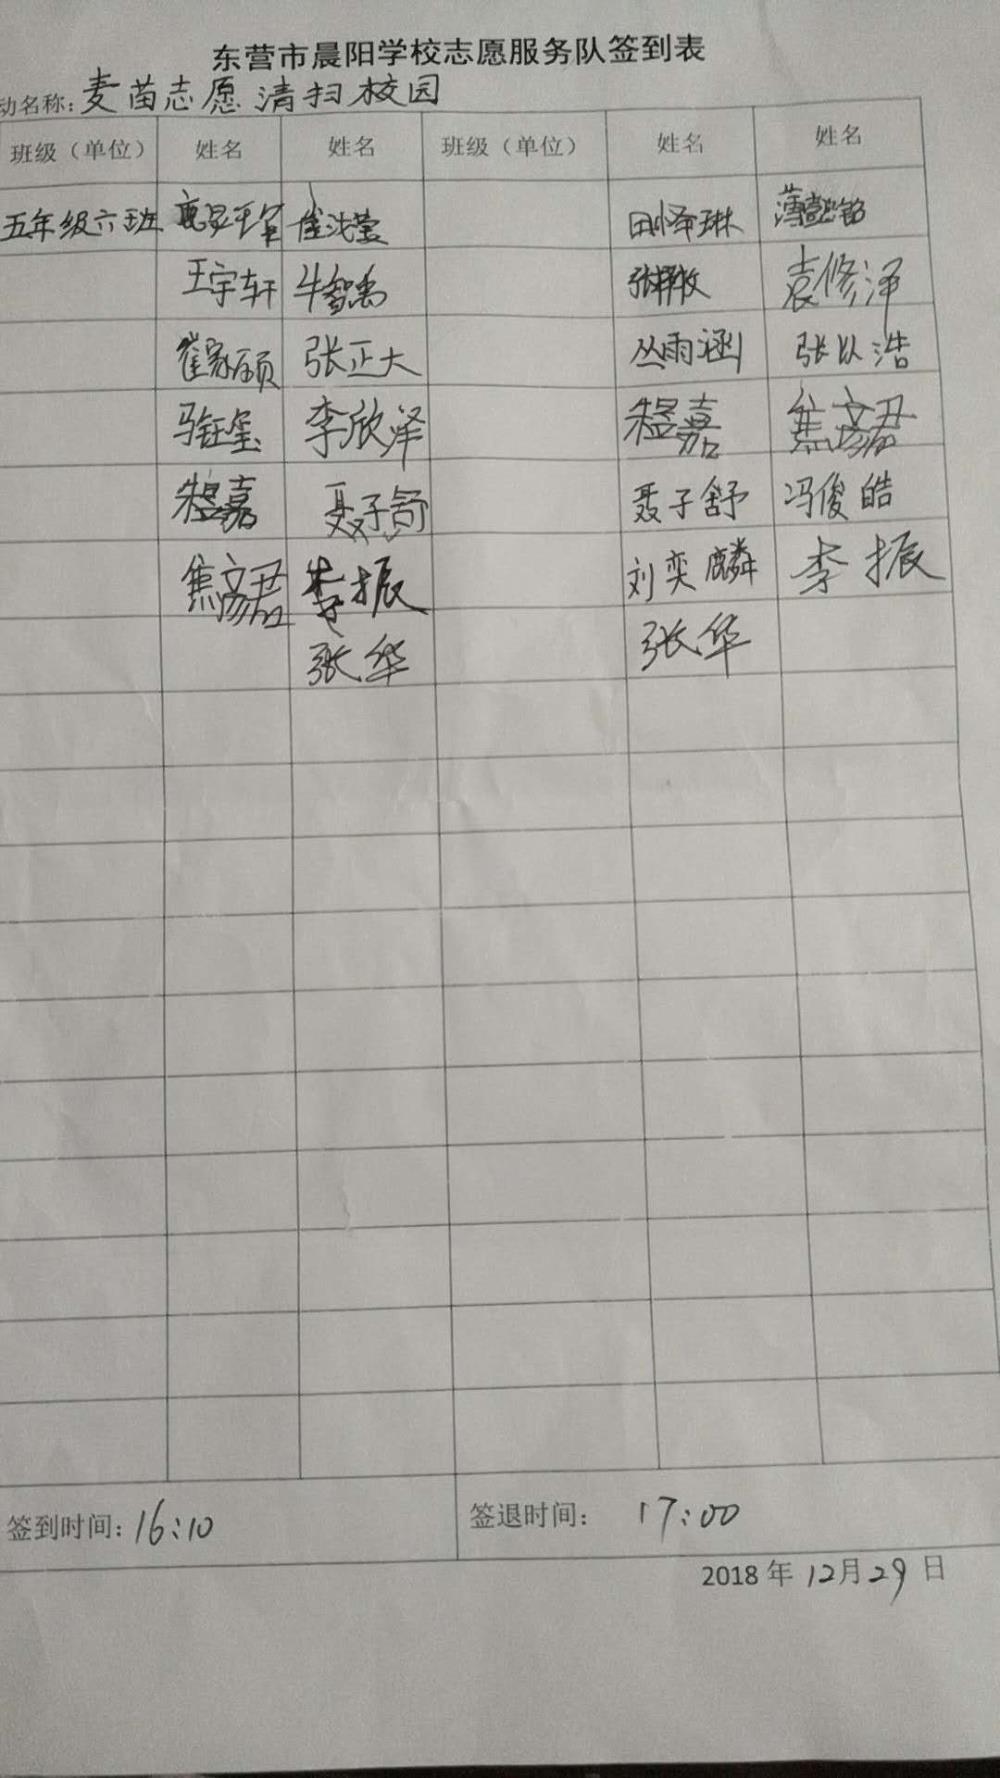 东营市晨阳学校志愿服务队签到表
动名称：麦苗志愿清扫校园
班级（单位） 姓名 姓名 班级（单位） 姓名 姓名
五年级六班
王宇轩 牛智禹 袁修泽
崔家硕 张正大 丛雨涵 张以浩
马钰玺 李欣泽 嘉 焦彦君
嘉 聂子舒 聂子舒 冯俊皓
焦彦君 李振 刘奕麟 李振
张华 张华
签到时间：16:10 签退时间： 17:00
2018年12月29日